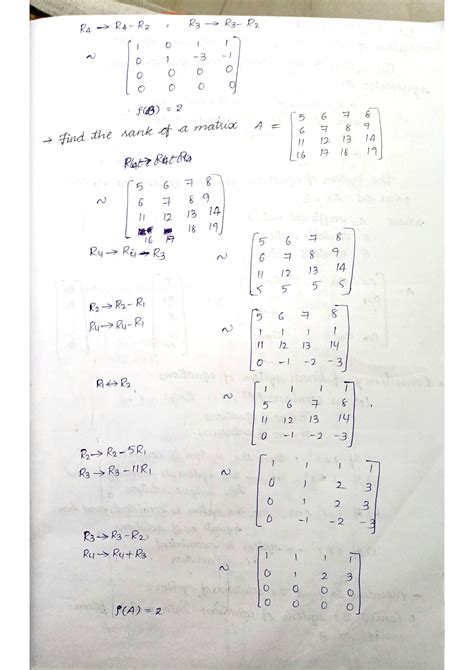 R4 → R4 - R2 , R3 → R3 - R2
~ [1 0 1 1
0 1 -3 -1
0 0 0 0
0 0 0 0]
ρ(B) = 2
→ Find the rank of a matrix A = [5 6 7 8
6 7 8 9
11 12 13 14
16 17 18 19]
~ [5 6 7 8
6 7 8 9
11 12 13 14
16 17 18 19]
R4 → R4 → R3
[5 6 7 8
6 7 8 9
11 12 13 14
5 5 5 5]
R2 → R2 - R1
R4 → R4 - R1
~ [5 6 7 8
1 1 1 1
11 12 13 14
0 -1 -2 -3]
R1 ↔ R2
~ [1 1 1 1
5 6 7 8
11 12 13 14
0 -1 -2 -3]
R2 → R2 - 5R1
R3 → R3 - 11R1
~ [1 1 1 1
0 1 2 3
0 1 2 3
0 -1 -2 -3]
R3 → R3 - R2
R4 → R4 + R3
~ [1 1 1 1
0 1 2 3
0 0 0 0
0 0 0 0]
ρ(A) = 2